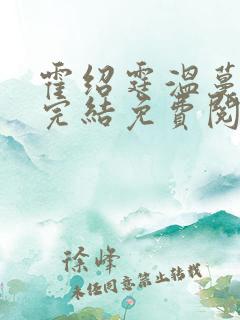 霍绍霆溫蔓
完結免費閱
徐峰
未经同意禁止转载